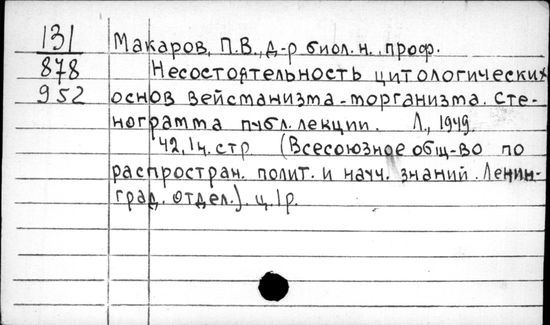 131 Макаров, П.В., д-р биол.н., проф.
878 Несостоятельность цитологических
952 основ вейсманизма-морганизма. Сте-
нограмма публ. лекции. Л., 1949.
42,1ч. стр (Всесоюзное общ-во по
распростран. полит. и науч. знаний. Ленин-
град. отдел.). ц.1р.